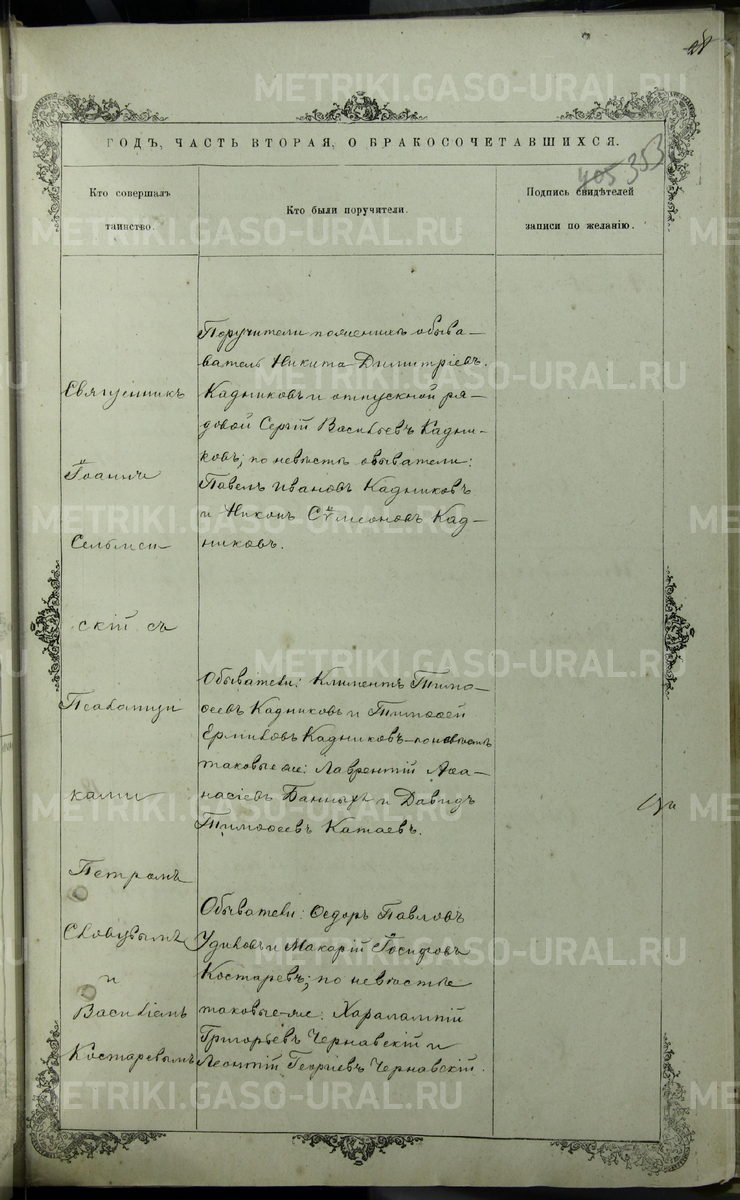 28
ГОДЪ, ЧАСТЬ ВТОРАЯ, О БРАКОСОЧЕТАВШИХСЯ.
405 353
Кто совершалъ
таинство.
Кто были поручители.
Подпись свидѣтелей
записи по желанію.
Священникъ
Іоаннъ
скій съ
Псаломщи
ками
Петромъ
и
Василіемъ
Костаревымъ
Поручители по женихѣ обыва-
ватель Никита Димитріевъ
Кадниковъ и отпускной ря-
довой Сергій Васильевъ Кадни-
ковъ; по невѣстѣ обыватели:
Павелъ Ивановъ Кадниковъ
и Никонъ Сѵмеоновъ Кад-
никовъ.
Обыватели: Климентъ Тимо-
ѳеевъ Кадниковъ и Тимоѳей
Ермиловъ Кадниковъ - по невѣстѣ
таковые же: Лаврентій Аѳа-
насіевъ Банныхъ и Давидъ
Тимоѳеевъ Катаевъ.
Обыватели: Ѳедоръ Павловъ
Удиловъ и Макарій Іосифовъ
Костаревъ; по невѣстѣ
таковые-же: Харалампій
Григорьевъ Чернавскій и
Леонтій Георгіевъ Чернавскій.
METRIKI.GASO-URAL.RU